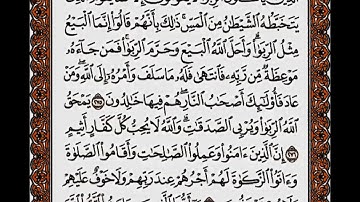 يَتَخَبَّطُهُ الشَّيْطَٰنُ مِنَ الْمَسِّ ذَٰلِكَ بِأَنَّهُمْ قَالُوٓا۟ إِنَّمَا الْبَيْعُ
مِثْلُ الرِّبَوٰا۟ وَأَحَلَّ اللَّهُ الْبَيْعَ وَحَرَّمَ الرِّبَوٰا۟ فَمَن جَآءَهُۥ
مَوْعِظَةٌ مِّن رَّبِّهِۦ فَانتَهَىٰ فَلَهُۥ مَا سَلَفَ وَأَمْرُهُۥٓ إِلَى اللَّهِ وَمَنْ
عَادَ فَأُو۟لَٰٓئِكَ أَصْحَٰبُ النَّارِ هُمْ فِيهَا خَٰلِدُونَ ٢٧٥ يَمْحَقُ
اللَّهُ الرِّبَوٰا۟ وَيُرْبِى الصَّدَقَٰتِ وَاللَّهُ لَا يُحِبُّ كُلَّ كَفَّارٍ أَثِيمٍ
٢٧٦ إِنَّ الَّذِينَ ءَامَنُوا۟ وَعَمِلُوا۟ الصَّٰلِحَٰتِ وَأَقَامُوا۟ الصَّلَوٰةَ
وَءَاتَوُا۟ الزَّكَوٰةَ لَهُمْ أَجْرُهُمْ عِندَ رَبِّهِمْ وَلَا خَوْفٌ عَلَيْهِمْ